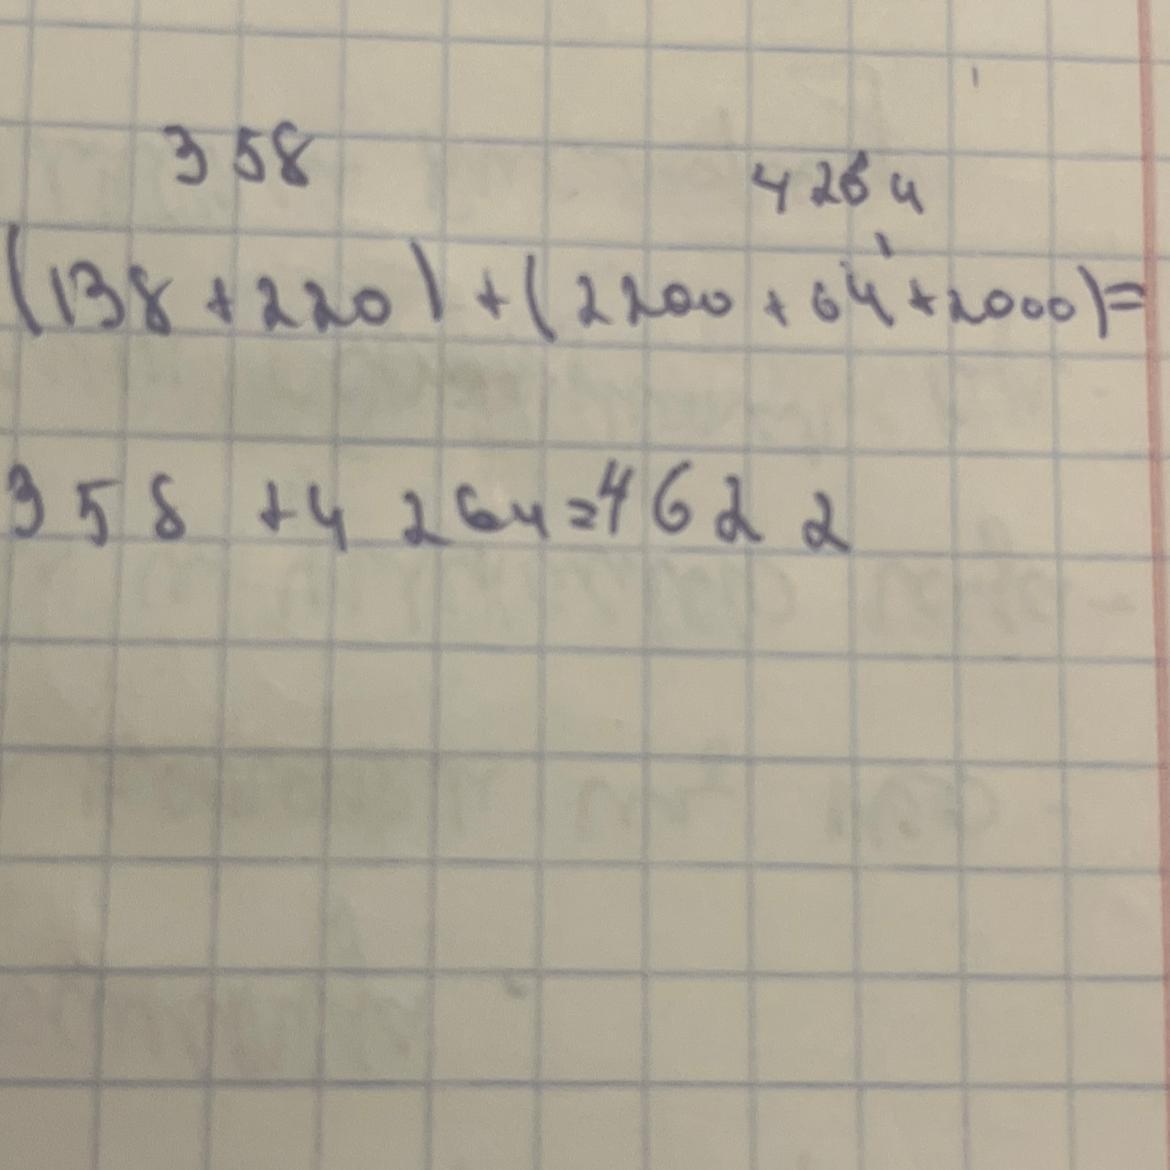 358 4264
(138+220)+(2200+64+2000)=
358+4264=4622